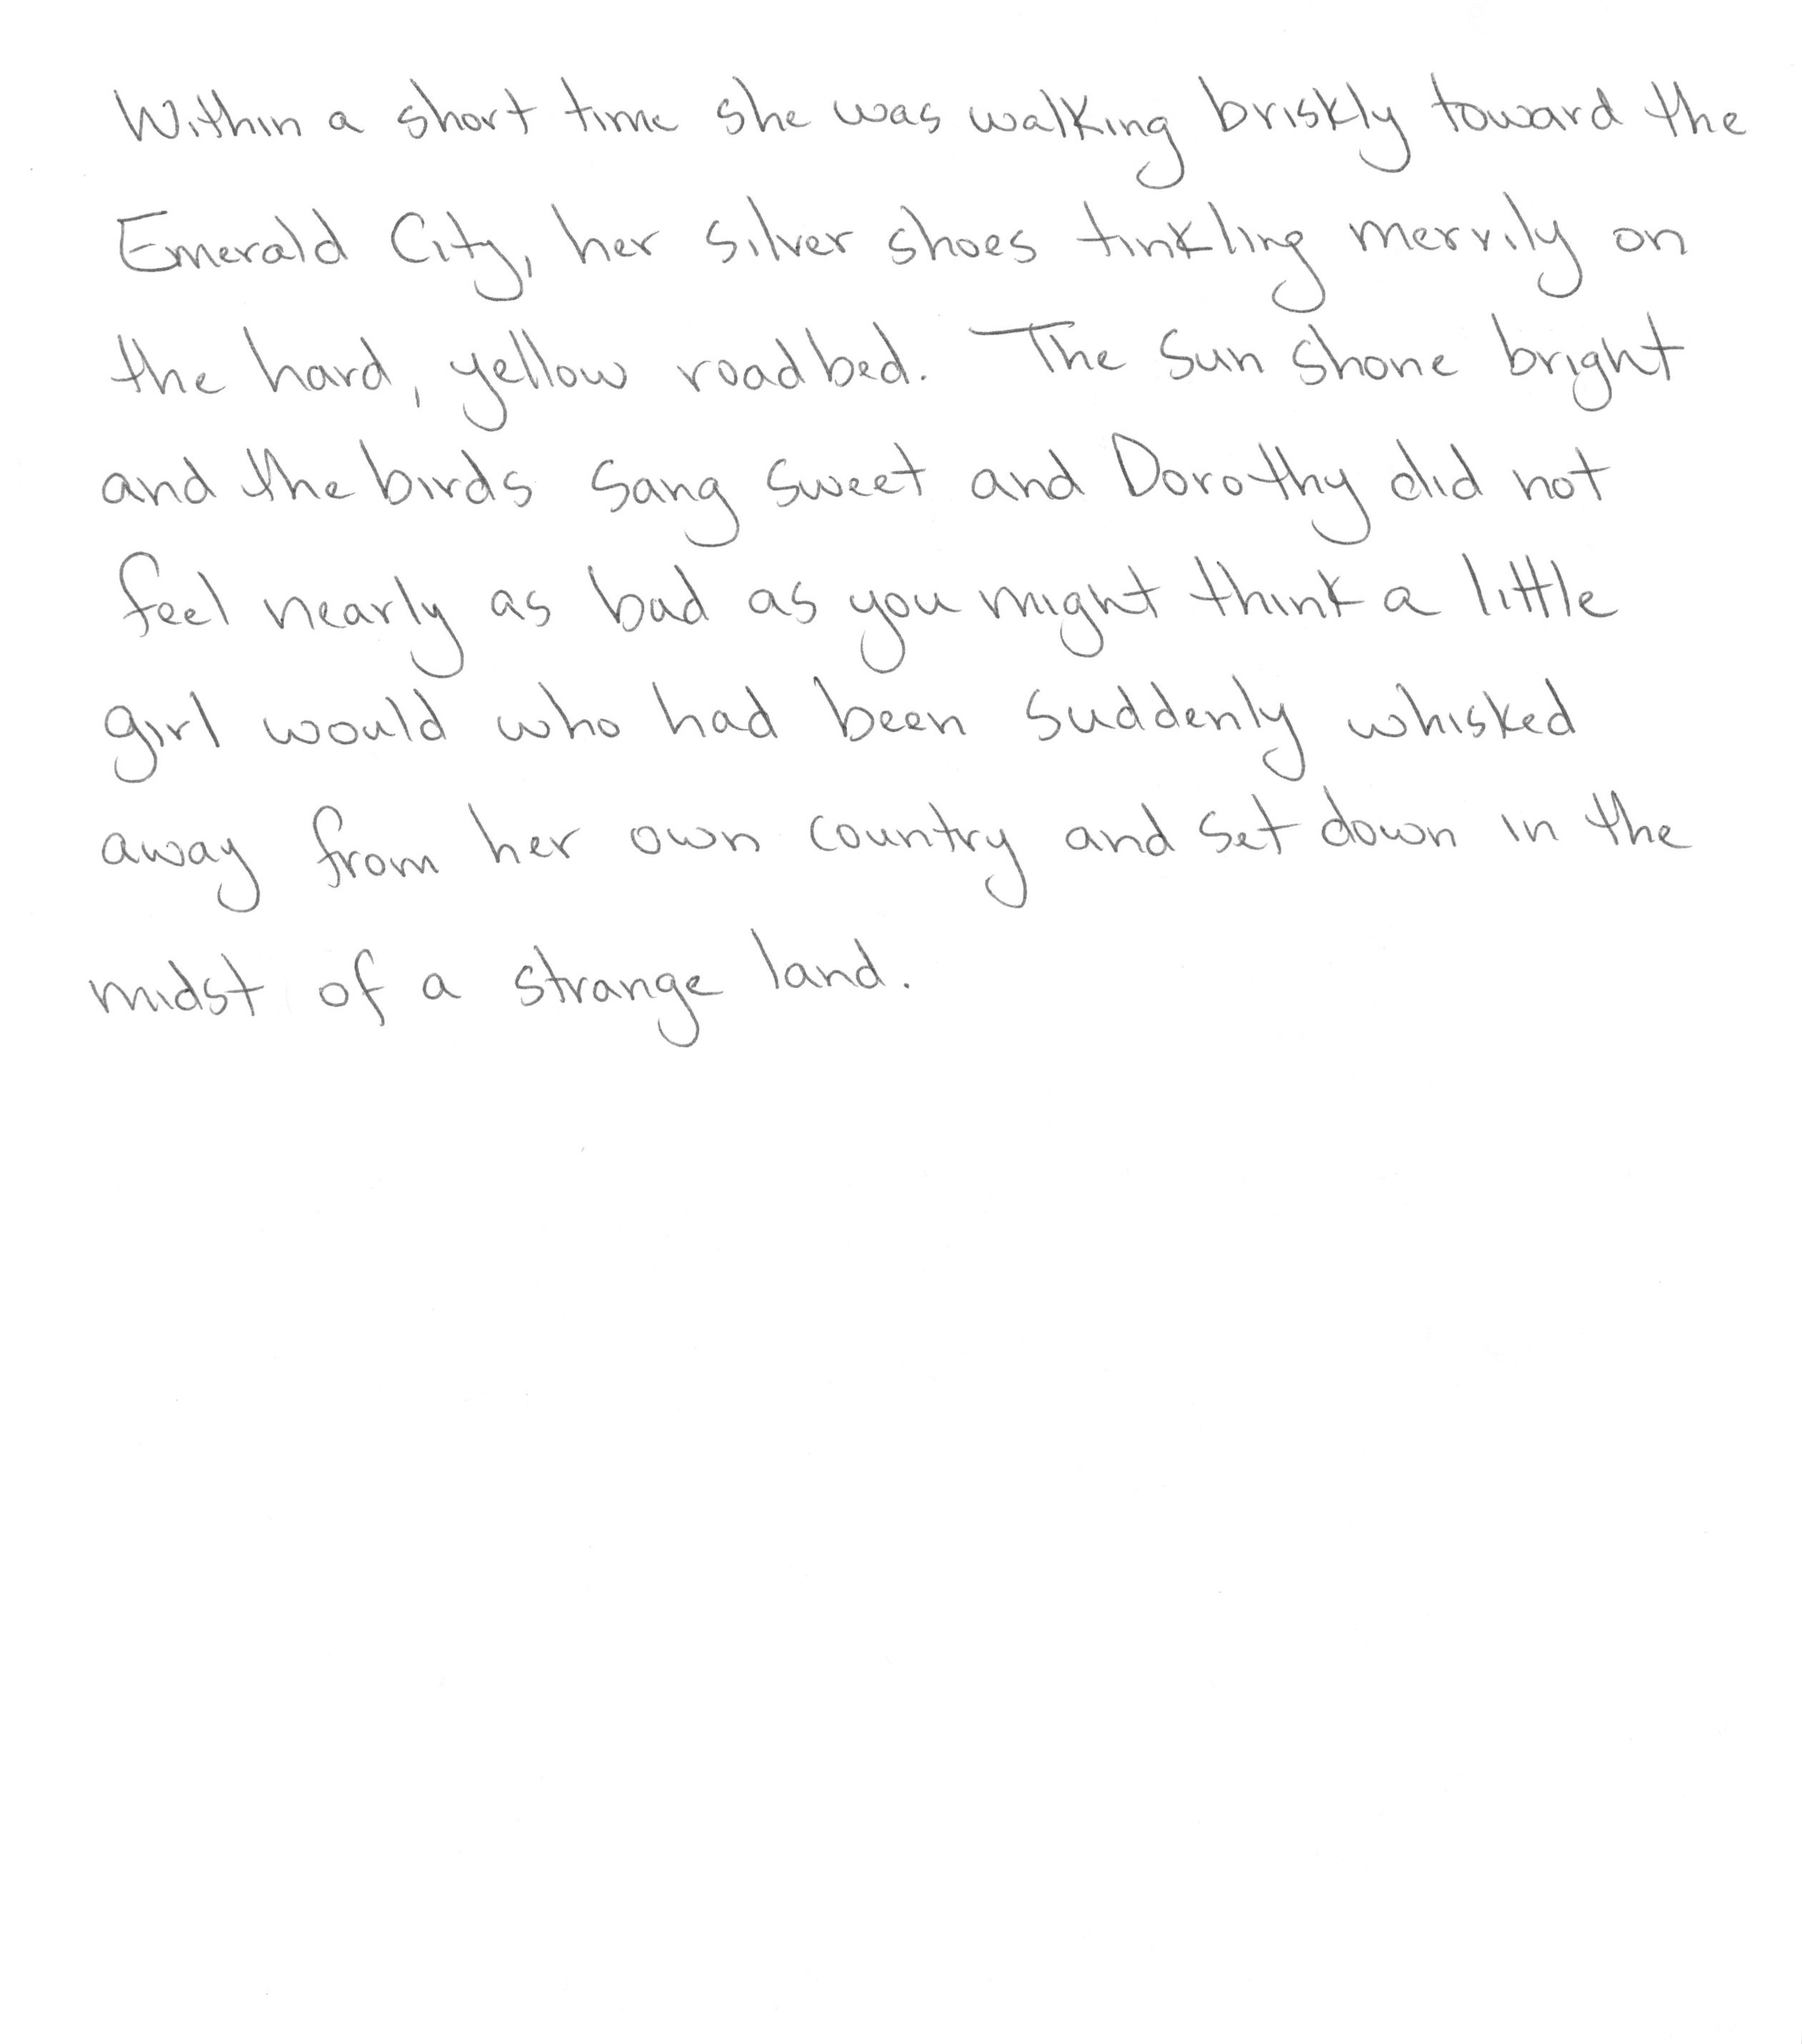 Within a short time she was walking briskly toward the
Emerald City, her silver shoes tinkling merrily on
the hard, yellow roadbed. The sun shone bright
and the birds sang sweet and Dorothy did not
feel nearly as bad as you might think a little
girl would who had been suddenly whisked
away from her own country and set down in the
midst of a strange land.